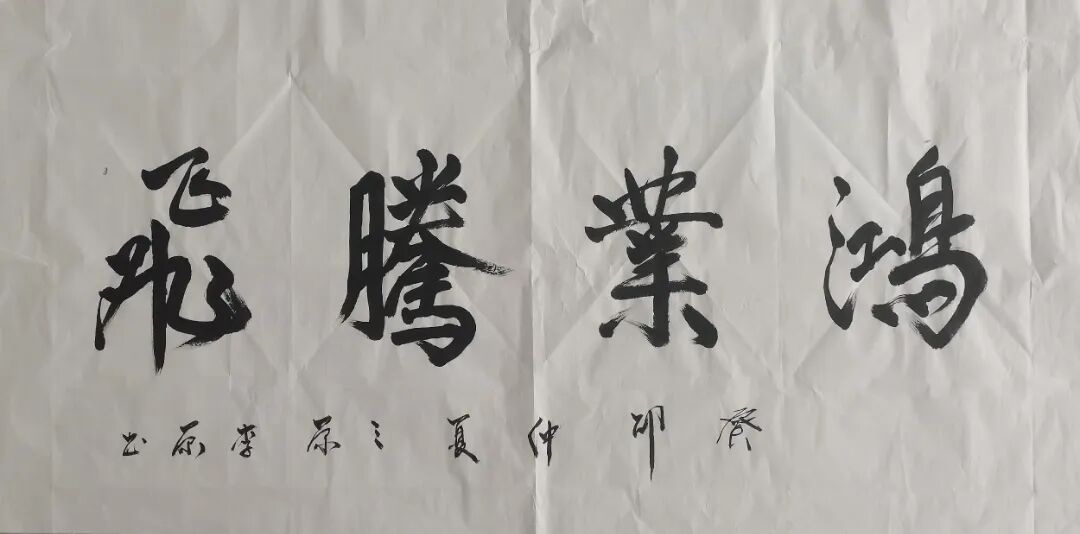 鴻業騰飛
癸卯仲夏之原李原书